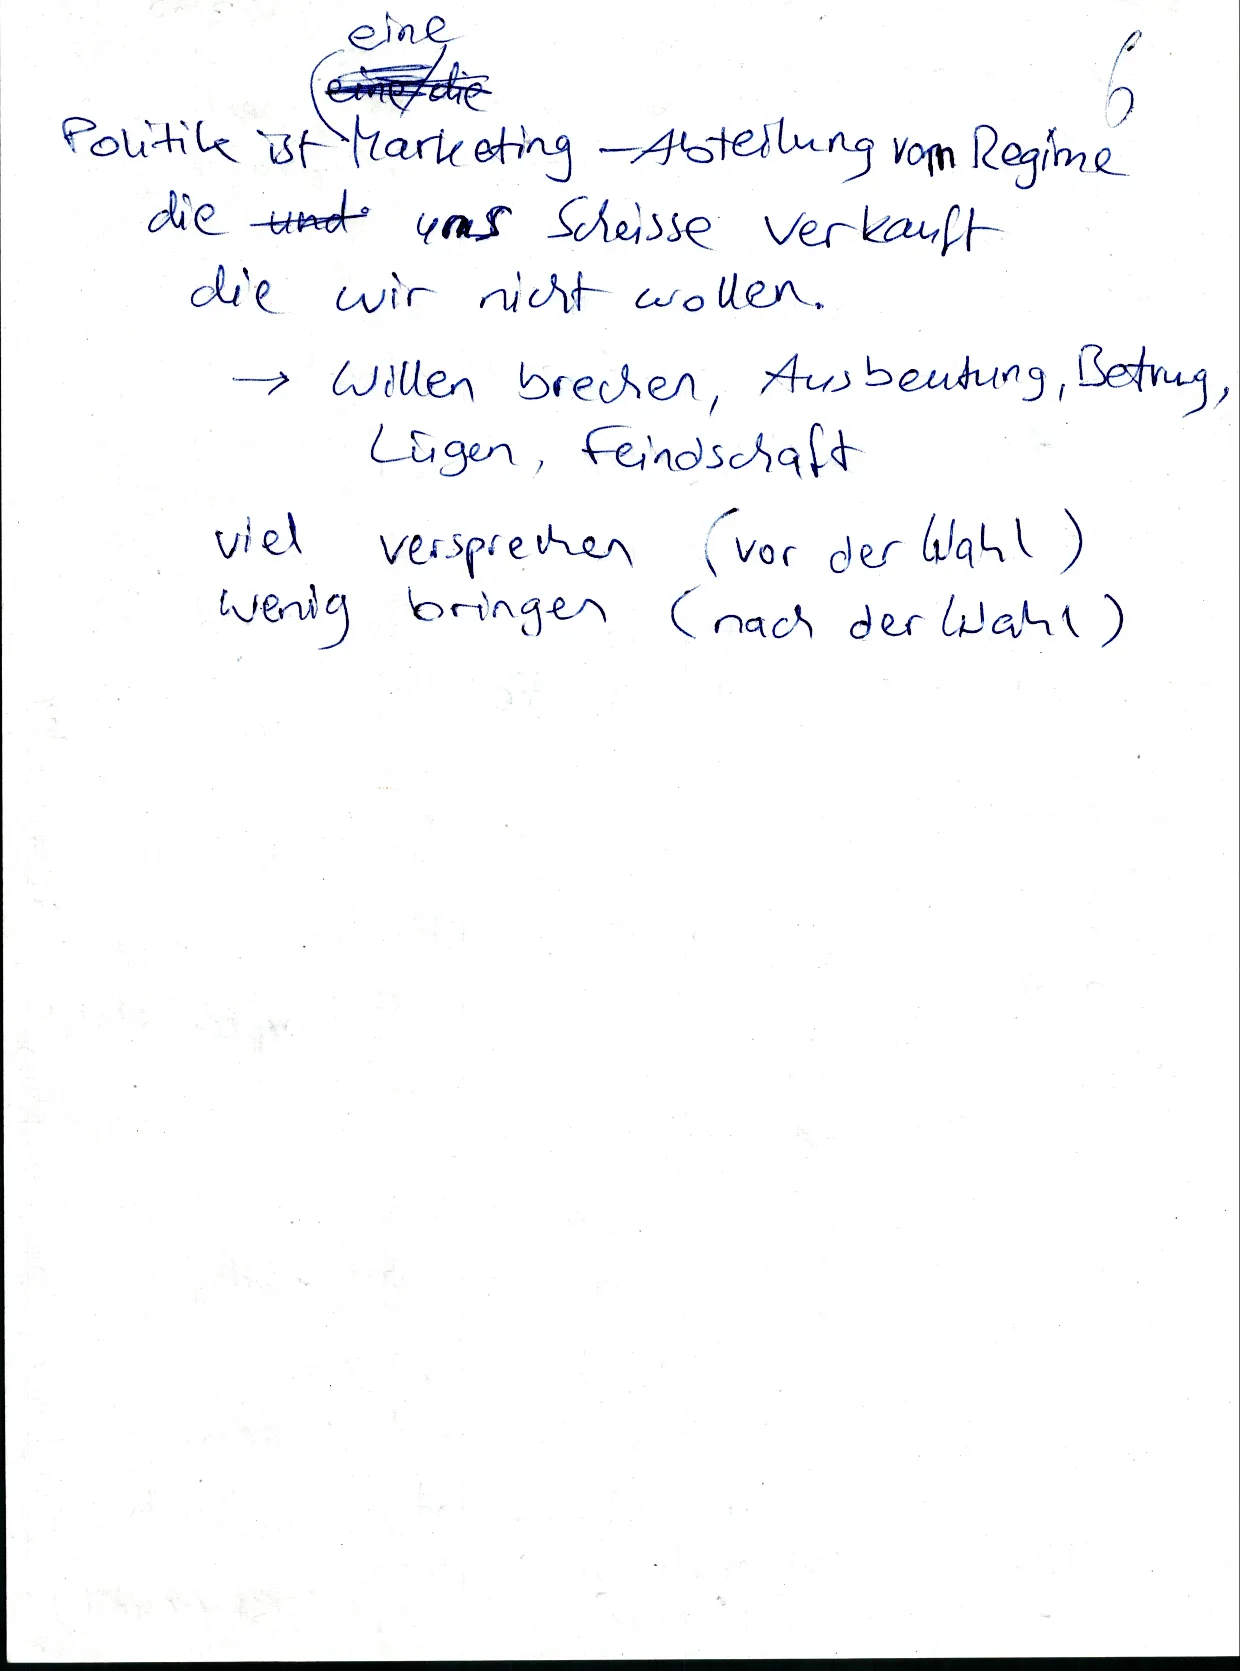 eine
eine/die
6
Politik ist Marketing-Abteilung vom Regime
die und uns Scheisse verkauft
die wir nicht wollen.
→ Willen brechen, Ausbeutung, Betrug,
Lügen, Feindschaft
viel versprechen (vor der Wahl)
wenig bringen (nach der Wahl)